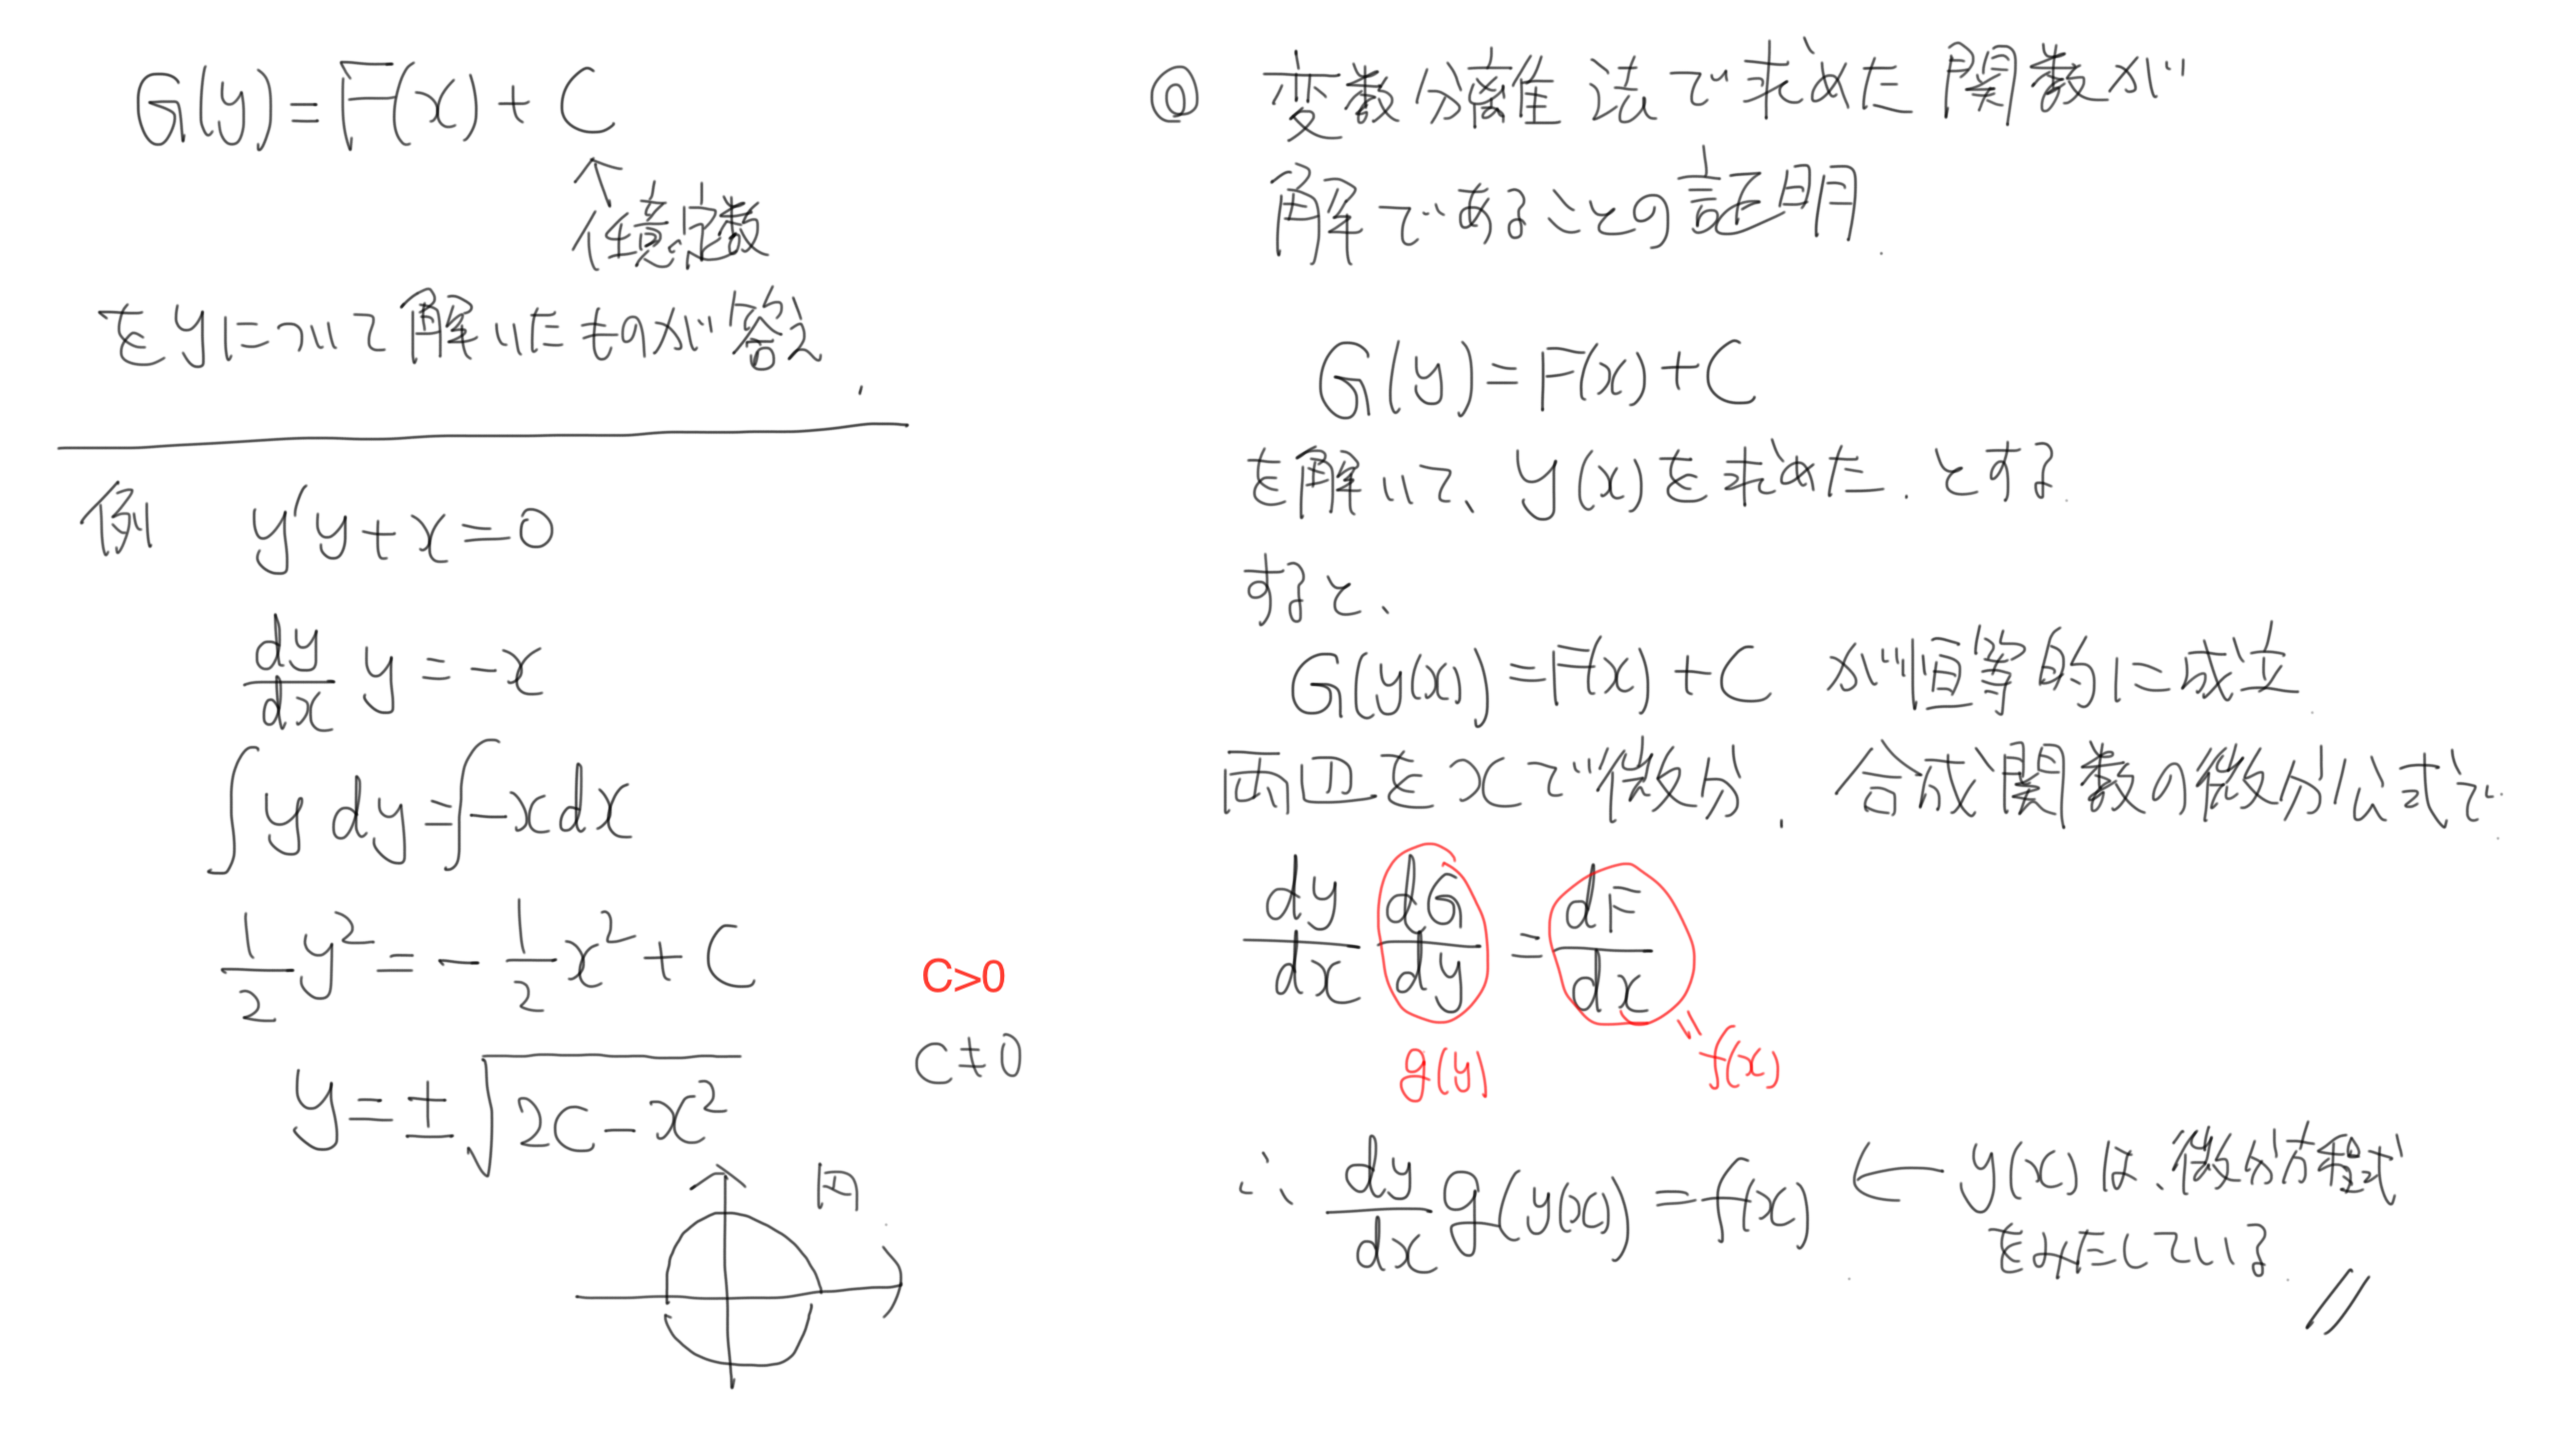 G(y) = F(x) + C
↑
任意定数
をyについて解いたものが答え.
例 y'y + x = 0
dy/dx y = -x
∫ y dy = ∫ -x dx
1/2 y² = - 1/2 x² + C
C>0
C≠0
y = ± √(2C - x²)
円
◎ 変数分離法で求めた関数が
解であることの証明.
G(y) = F(x) + C
を解いて、y(x)を求めた. とする.
すると、
G(y(x)) = F(x) + C が恒等的に成立.
両辺をxで微分. 合成関数の微分公式で.
dy/dx dG/dy = dF/dx
g(y)
= f(x)
∴ dy/dx g(y(x)) = f(x) ← y(x)は、微分方程式
をみたしている. //